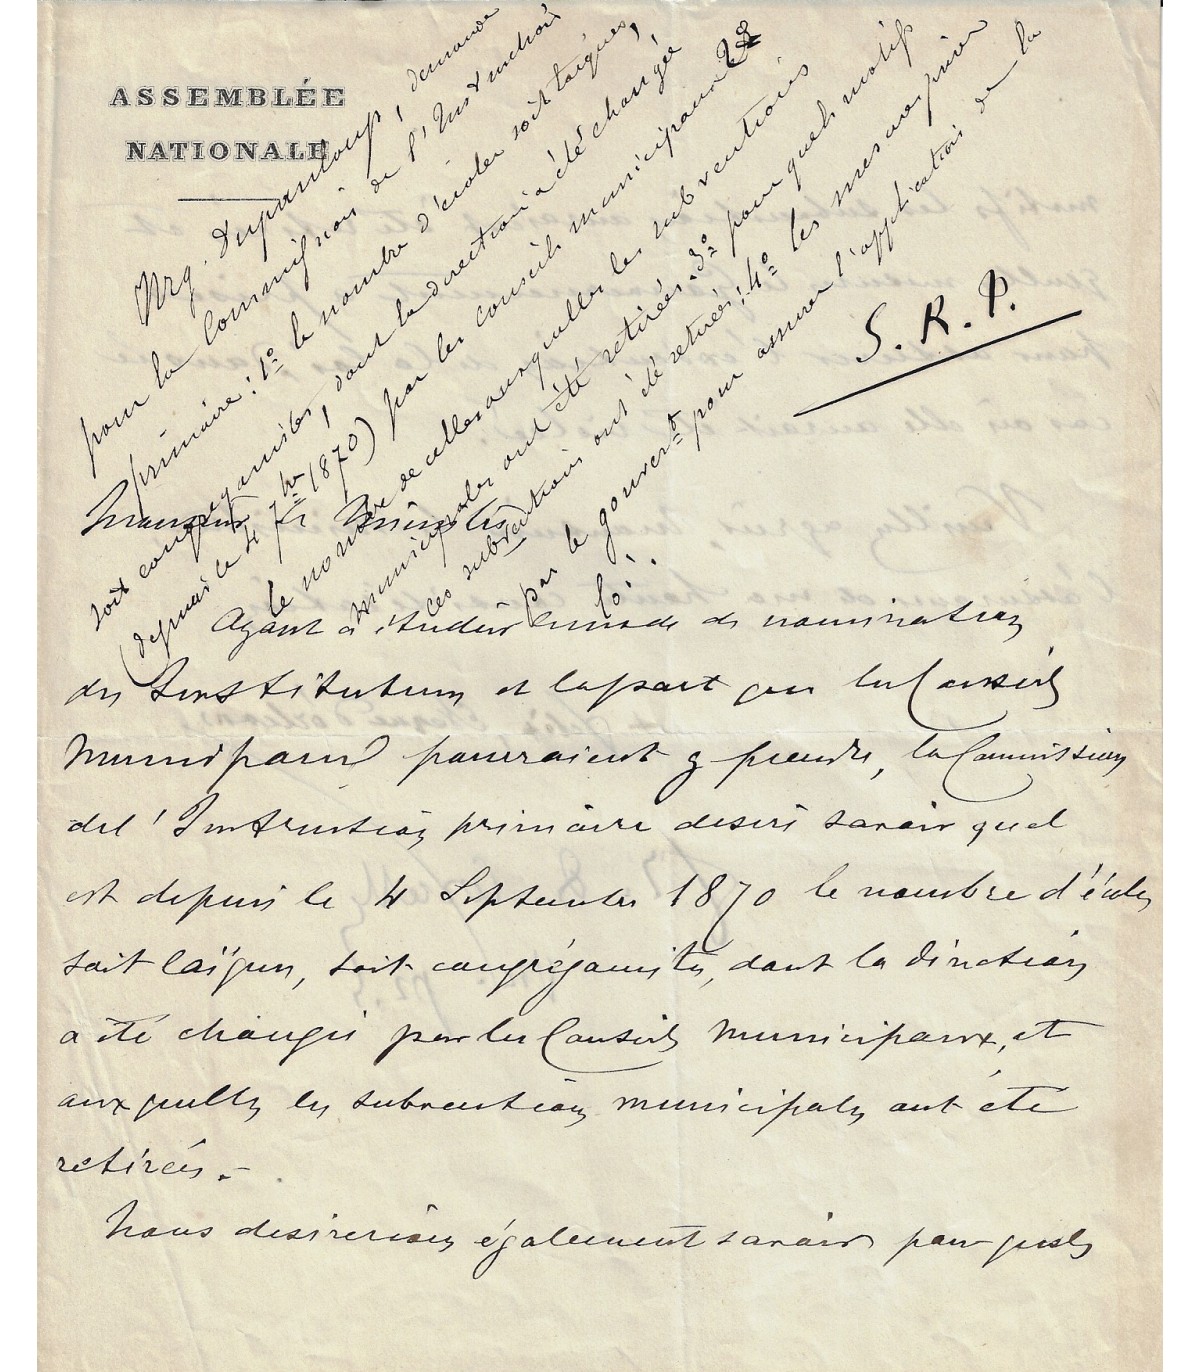 ASSEMBLÉE
NATIONALE
Mrg. Dupanloup, demande
pour la Commission de l'Instruction
primaire: 1º le nombre d'écoles soit laïques,
soit congréganistes, dont la direction a été changée
(depuis le 4 7bre 1870) par les conseils municipaux 2º
le nombre de celles auxquelles les subventions
municipales ont été retirées. 3º pour quels motifs
ces subventions ont été retirées; 4º les mesures prises
par le gouvert pour assurer l'application de la
loi.
S. R. P.
Monsieur le Ministre
Ayant à étudier le mode de nomination
des Instituteurs et la part que les Conseils
Municipaux pourraient y prendre, la Commission
de l'Instruction primaire désire savoir quel
est depuis le 4 Septembre 1870 le nombre d'écoles
soit laïques, soit congréganistes, dont la direction
a été changée par les Conseils Municipaux, et
auxquelles les subventions municipales ont été
retirées.-
Nous desirerions également savoir pour quels